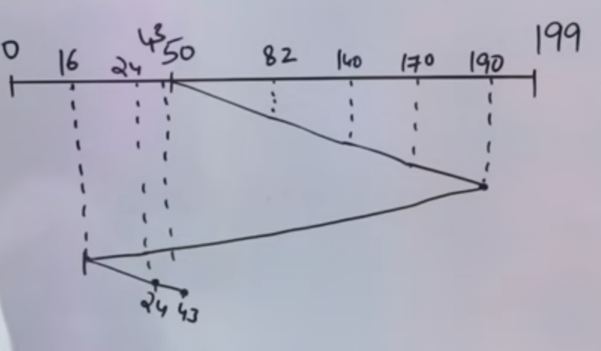 0 16 24 43 50 82 140 170 190 199
24 43